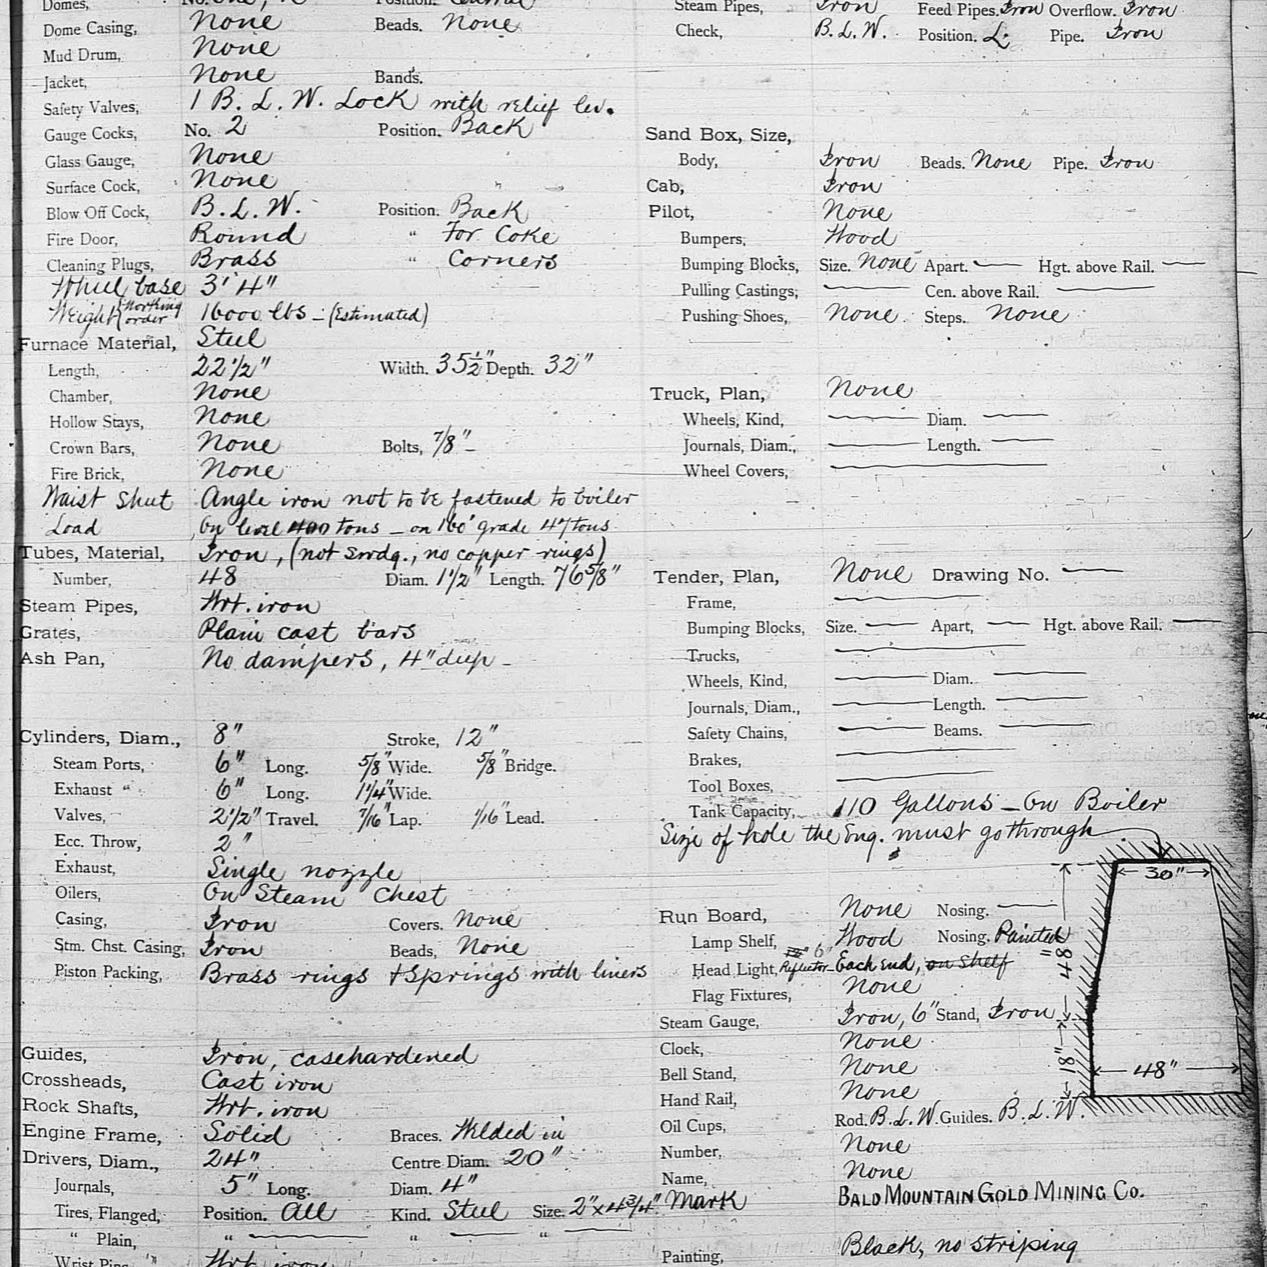 Domes, No. One, Position. Central
Dome Casing, None Beads. None
Mud Drum, None
Jacket, None Bands.
Safety Valves, 1 B. L. W. Lock with relief lev.
Gauge Cocks, No. 2 Position. Back
Glass Gauge, None
Surface Cock, None
Blow Off Cock, B. L. W. Position. Back
Fire Door, Round " For Coke
Cleaning Plugs, Brass " Corners
Wheel base 3' 4"
Weight (working order 16000 lbs - (Estimated)
Furnace Material, Steel
Length, 22 1/2" Width. 35 1/2" Depth. 32"
Chamber, None
Hollow Stays, None
Crown Bars, None Bolts, 7/8"
Fire Brick, None
Waist Sheet Angle iron not to be fastened to boiler
Load On level 400 tons - on 160' grade 47 tons
Tubes, Material, Iron, (not swdg., no copper rings)
Number, 48 Diam. 1 1/2" Length. 76 5/8"
Steam Pipes, Wrt. iron
Grates, Plain cast bars
Ash Pan, No dampers, 4" deep -
Cylinders, Diam., 8" Stroke, 12"
Steam Ports, 6" Long. 5/8" Wide. 5/8" Bridge.
Exhaust " 6" Long. 1 1/4" Wide.
Valves, 2 1/2" Travel. 7/16" Lap. 1/16" Lead.
Ecc. Throw, 2"
Exhaust, Single nozzle
Oilers, On Steam Chest
Casing, Iron Covers. None
Stm. Chst. Casing, Iron Beads, None
Piston Packing, Brass rings + springs with liners
Guides, Iron, casehardened
Crossheads, Cast iron
Rock Shafts, Wrt. iron
Engine Frame, Solid Braces. Welded in
Drivers, Diam., 24" Centre Diam. 20"
Journals, 5" Long. Diam. 4"
Tires, Flanged, Position. All Kind. Steel Size. 2" x 4 3/4"
" Plain, " " "
Wrist Pins, " Wrt iron
Steam Pipes, Iron Feed Pipes. Iron Overflow. Iron
Check, B. L. W. Position. L. Pipe. Iron
Sand Box, Size,
Body, Iron Beads. None Pipe. Iron
Cab, Iron
Pilot, None
Bumpers, Wood
Bumping Blocks, Size. None Apart. Hgt. above Rail.
Pulling Castings, Cen. above Rail.
Pushing Shoes, None Steps. None
Truck, Plan, None
Wheels, Kind, Diam.
Journals, Diam., Length.
Wheel Covers,
Tender, Plan, None Drawing No.
Frame,
Bumping Blocks, Size. Apart, Hgt. above Rail.
Trucks,
Wheels, Kind, Diam.
Journals, Diam., Length.
Safety Chains, Beams.
Brakes,
Tool Boxes,
Tank Capacity, 110 Gallons - On Boiler
Size of hole the Eng. must go through
30"
48"
18"
48"
Run Board, None Nosing.
Lamp Shelf, Wood Nosing. Painted
Head Light, 6" Reflector Each end, on shelf
Flag Fixtures, None
Steam Gauge, Iron, 6" Stand, Iron
Clock, None
Bell Stand, None
Hand Rail, None
Oil Cups, Rod. B. L. W. Guides. B. L. W.
Number, None
Name, None
Mark BALD MOUNTAIN GOLD MINING CO.
Painting, Black, no striping